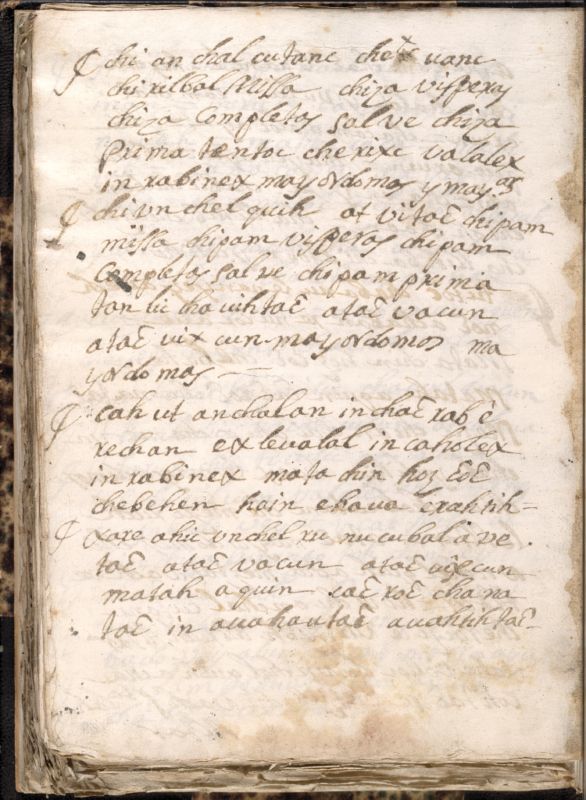 ¶ chi an chal cutanc chetz uanc
chi rilbal Missa chiza visperas
chiza Completas salve chiza
Prima taentoc che rixc valalex
in rabinex mayordomos y may.as
¶ chi vn chel quih at vitac̃ chi pam
missa chipam visperas chi pam
Completas salve chi pam prima
tan lic chavihtac̃ atac̃ vacun
atac̃ vix cun mayordomos ma
yordomas —
¶ cah ut anchalan inchac̃ rab è
rechan ex levalal in caholex
in rabinex mata chin hoz c̃c̃
chebehen hain chava crahtih=
¶ xare ahic vnchel ru nucubal ave
tac̃ atac̃ vacun atac̃ vixcun
matah aquin cac̃ roc̃ chana
tac̃ in avahautac̃ avahtihtac̃-